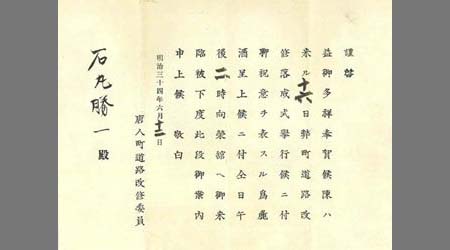 謹啓
益御多祥奉賀候陳ハ
来ル十六日弊町道路改
修落成式擧行候ニ付
聊祝意ヲ表スル爲麁
酒呈上候ニ付仝日午
後二時向榮舘ヘ御来
臨被下度此段御案内
申上候 敬白
明治三十四年六月十二日
唐人町道路改修委員
石丸勝一殿